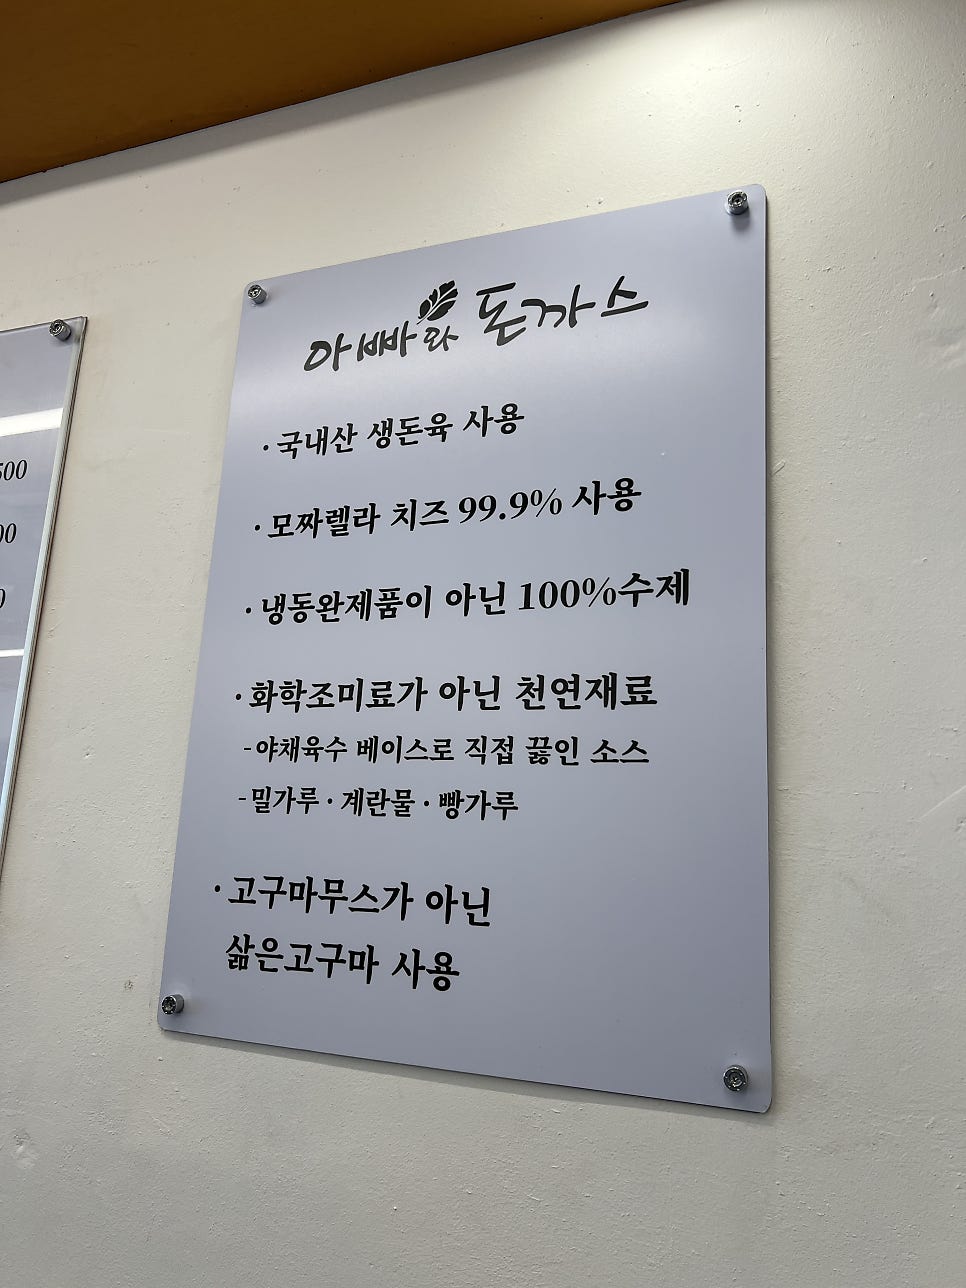 아빠와 돈까스
· 국내산 생돈육 사용
· 모짜렐라 치즈 99.9% 사용
· 냉동완제품이 아닌 100%수제
· 화학조미료가 아닌 천연재료
-야채육수 베이스로 직접 끓인 소스
-밀가루 · 계란물 · 빵가루
· 고구마무스가 아닌
삶은고구마 사용